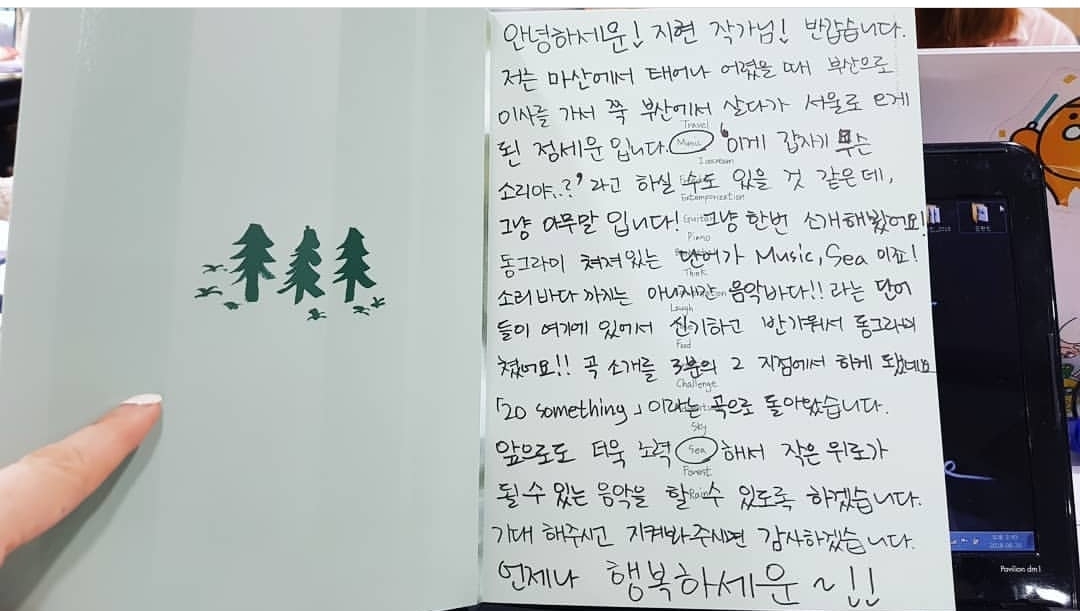 안녕하세운! 지현 작가님! 반갑습니다.
저는 마산에서 태어나 어렸을 때 부산으로
이사를 가서 쭉 부산에서 살다가 서울로 오게
Travel
된 정세운 입니다. Music '이게 갑자기 무슨
Icecream
소리야..?' 라고 하실 수도 있을 것 같은데,
Extemporization
그냥 아무말 입니다! Guitar 그냥 한번 소개해봤어요!
Piano
동그라미 쳐져있는 단어가 Music, Sea 이죠!
Think
소리바다 까지는 아니지만 음악바다!! 라는 단어
Laugh
들이 여기에 있어서 신기하고 반가워서 동그라미
Food
쳤어요!! 곡 소개를 3분의 2 지점에서 하게 됐네요
Challenge
「20 something」이라는 곡으로 돌아왔습니다.
Sky
앞으로도 더욱 노력 Sea 해서 작은 위로가
Forest
될 수 있는 음악을 할 Rain 수 있도록 하겠습니다.
기대 해주시고 지켜봐주시면 감사하겠습니다.
언제나 행복하세운~!!
Pavilion dm1